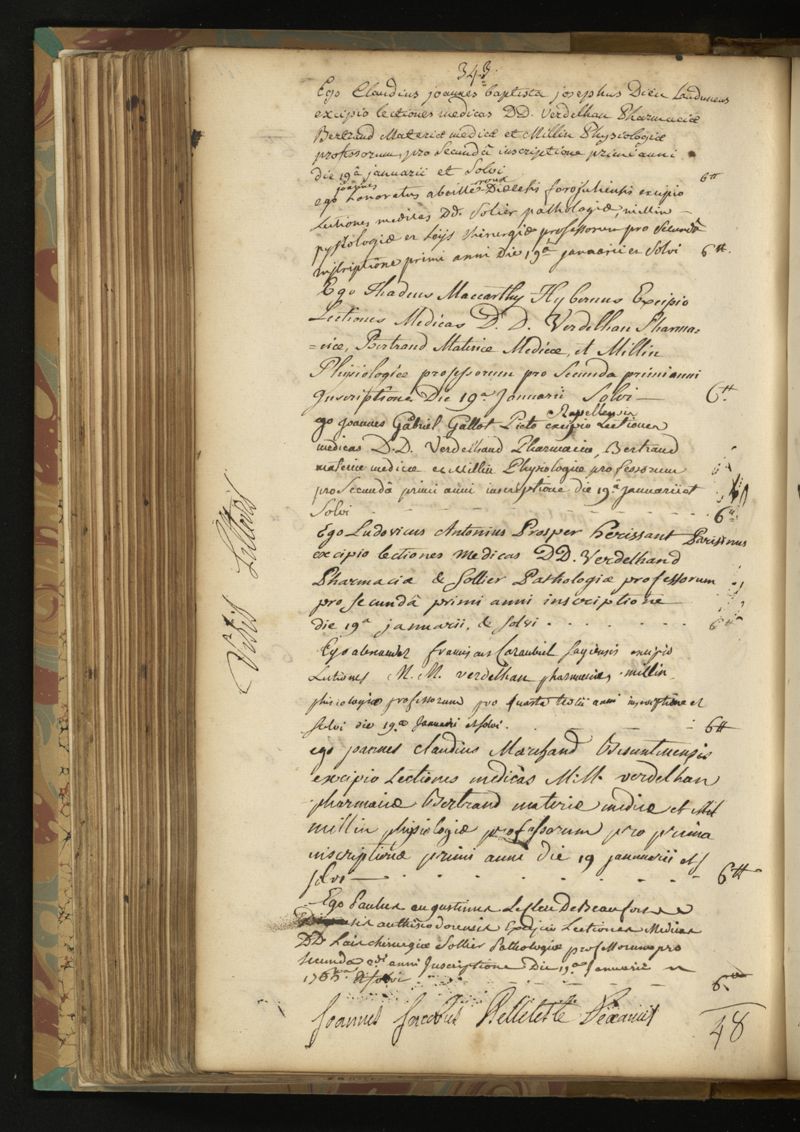 343.
Ego Claudius joannes baptista josephus Dieu Lauduneus
excipio lectiones medicas DD. Verdelhan Pharmaciæ
Bertrand Materiæ medicæ et Millin Physiologiæ
professorum, pro secundâ inscriptione primi anni
die 19â januarii et Solvi 6tt
joannes
ego honoratus abeille forojuliensis excipio
Lectiones medicas DD. Solier pathologiæ millin
pysiologiæ et chirurgiæ professorum pro secundâ
inscriptione primi anni die 19â januarii et solvi 6tt.
Ego Thadeus Maccarthy Hybernus Excipio
Lectiones Medicas D. D. Verdelhan Pharma=
=ciæ, Bertrand Materiæ Medicæ, et Millin
Physiologiæ professorum pro Secunda primi anni
Inscriptione Die 19a Januarii Solvi — 6tt
ego joannes Gabriel Gallot Picto excipio Lectiones
medicas D.D. Verdelhand Pharmaciæ, Bertrand
materiæ medicæ et Millin Physiologiæ professorum
pro Secundâ primi anni inscriptione die 19â januarii et
Solvi - - - - - 6tt
Ego Ludovicus Antonius Prosper herissant Parisinus
excipio lectiones medicas DD. Verdelhand
Pharmaciæ & Sollier Pathologiæ professorum
pro secundâ primi anni inscriptione
die 19a januarii, & solvi - - - - 6tt
Ego alexander franciscus sagiensis excipio
Lectiones M. M. verdelhan pharmaciæ, millin
phisiologiæ professorum pro quarta anni inscriptione et
solvi die 19a Januarii et solvi. 6tt
ego joannes claudius Marchand Bisuntinensis
excipio Lectiones medicas M.M. verdelhan
pharmaciæ Bertrand materiæ medicæ et Mil
millin phisiologiæ professorum pro prima
inscriptione primi anni die 19 januarii et s
solvi - - - - - 6tt
Ego Paulus augustinus DeBeaufort
autissiodorensis Lectiones Medicas
DD chirurgiæ Sollier Pathologiæ professorum pro
secunda anni Inscriptione Die 19a Januarii
et solvi - - - - 6tt
48
Joannes Jacobus Belleteste Decanus